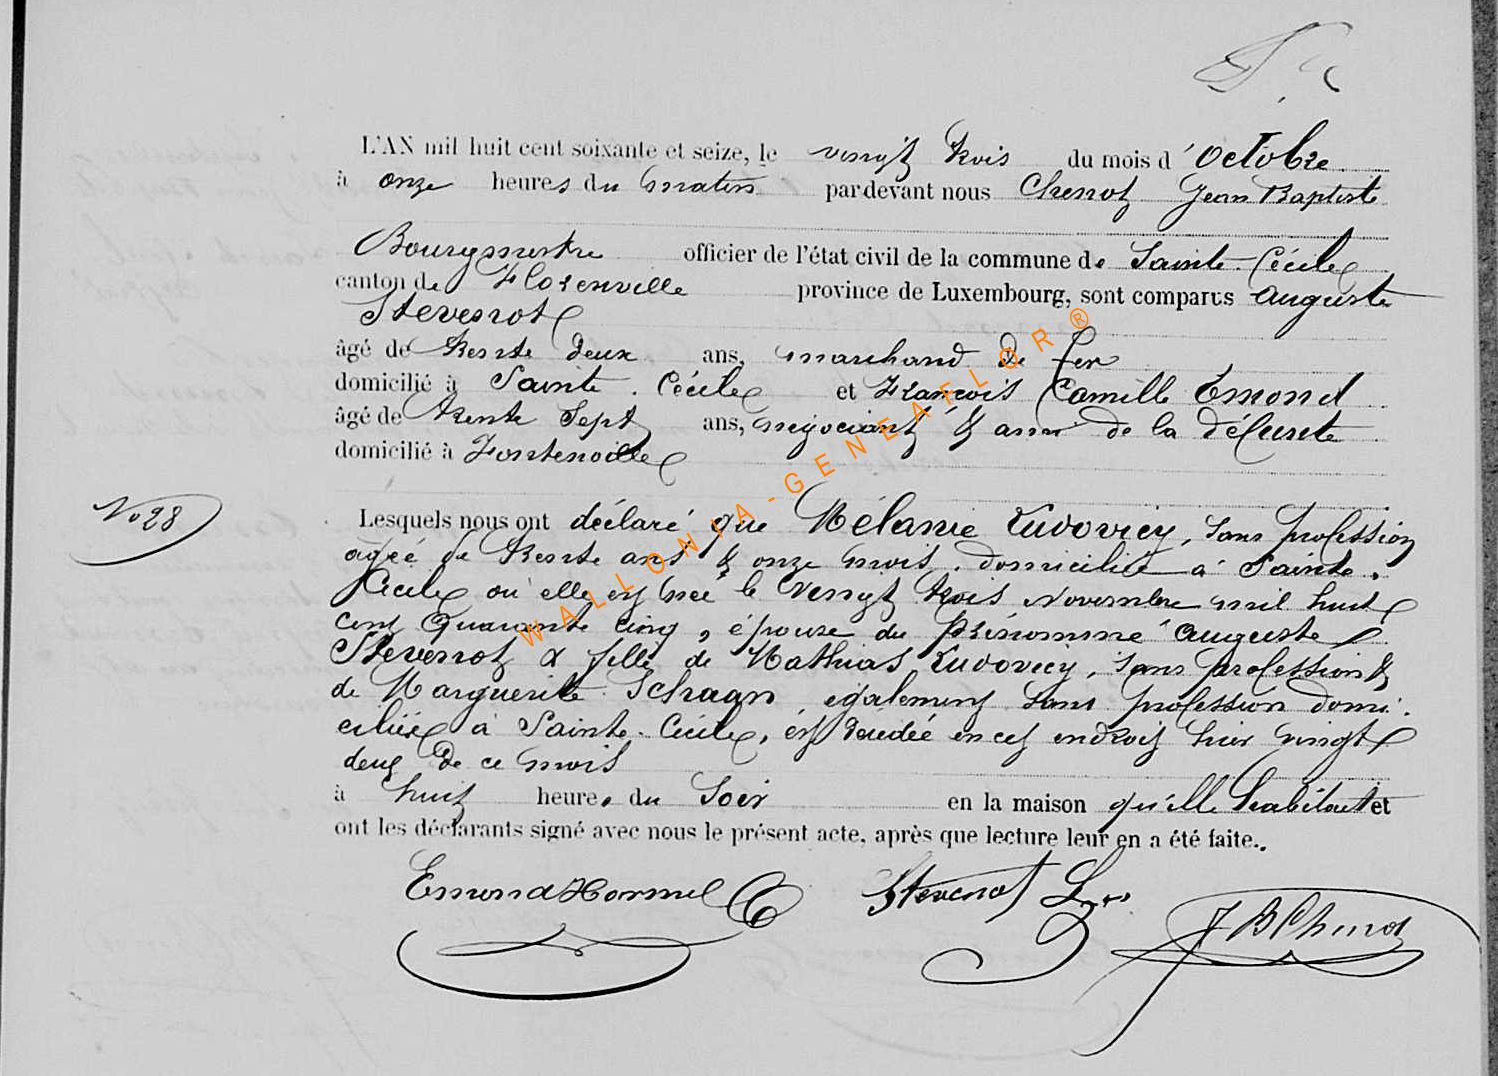 L'AN mil huit cent soixante et seize, le vingt trois du mois d'Octobre
à onze heures du matin pardevant nous Chenot Jean Baptiste
Bourgmestre officier de l'état civil de la commune de Sainte-Cécile
canton de Florenville province de Luxembourg, sont comparus Auguste
Stevenot
âgé de Trente deux ans, marchand de fer
domicilié à Sainte-Cécile et François Camille Émond
âgé de trente Sept ans, négociant & ami de la défunte
domicilié à Fontenoille
N° 28
Lesquels nous ont déclaré que Mélanie Ludovicy, sans profession
agée de Trente ans & onze mois, domiciliée à Sainte-
Cécile où elle est née le vingt trois Novembre mil huit
cent Quarante cinq, épouse du prénommé Auguste
Stevenot & fille de Mathias Ludovicy, sans profession &
de Marguerite également sans profession domi-
ciliée à Sainte-Cécile, est décédée en cet endroit hier vingt
deux de ce mois
à huit heures du Soir en la maison qu'elle habitait et
ont les déclarants signé avec nous le présent acte, après que lecture leur en a été faite.
Emond Hormel Stevenot L JB Chenot
WALLONIA-GENEAFLOR®